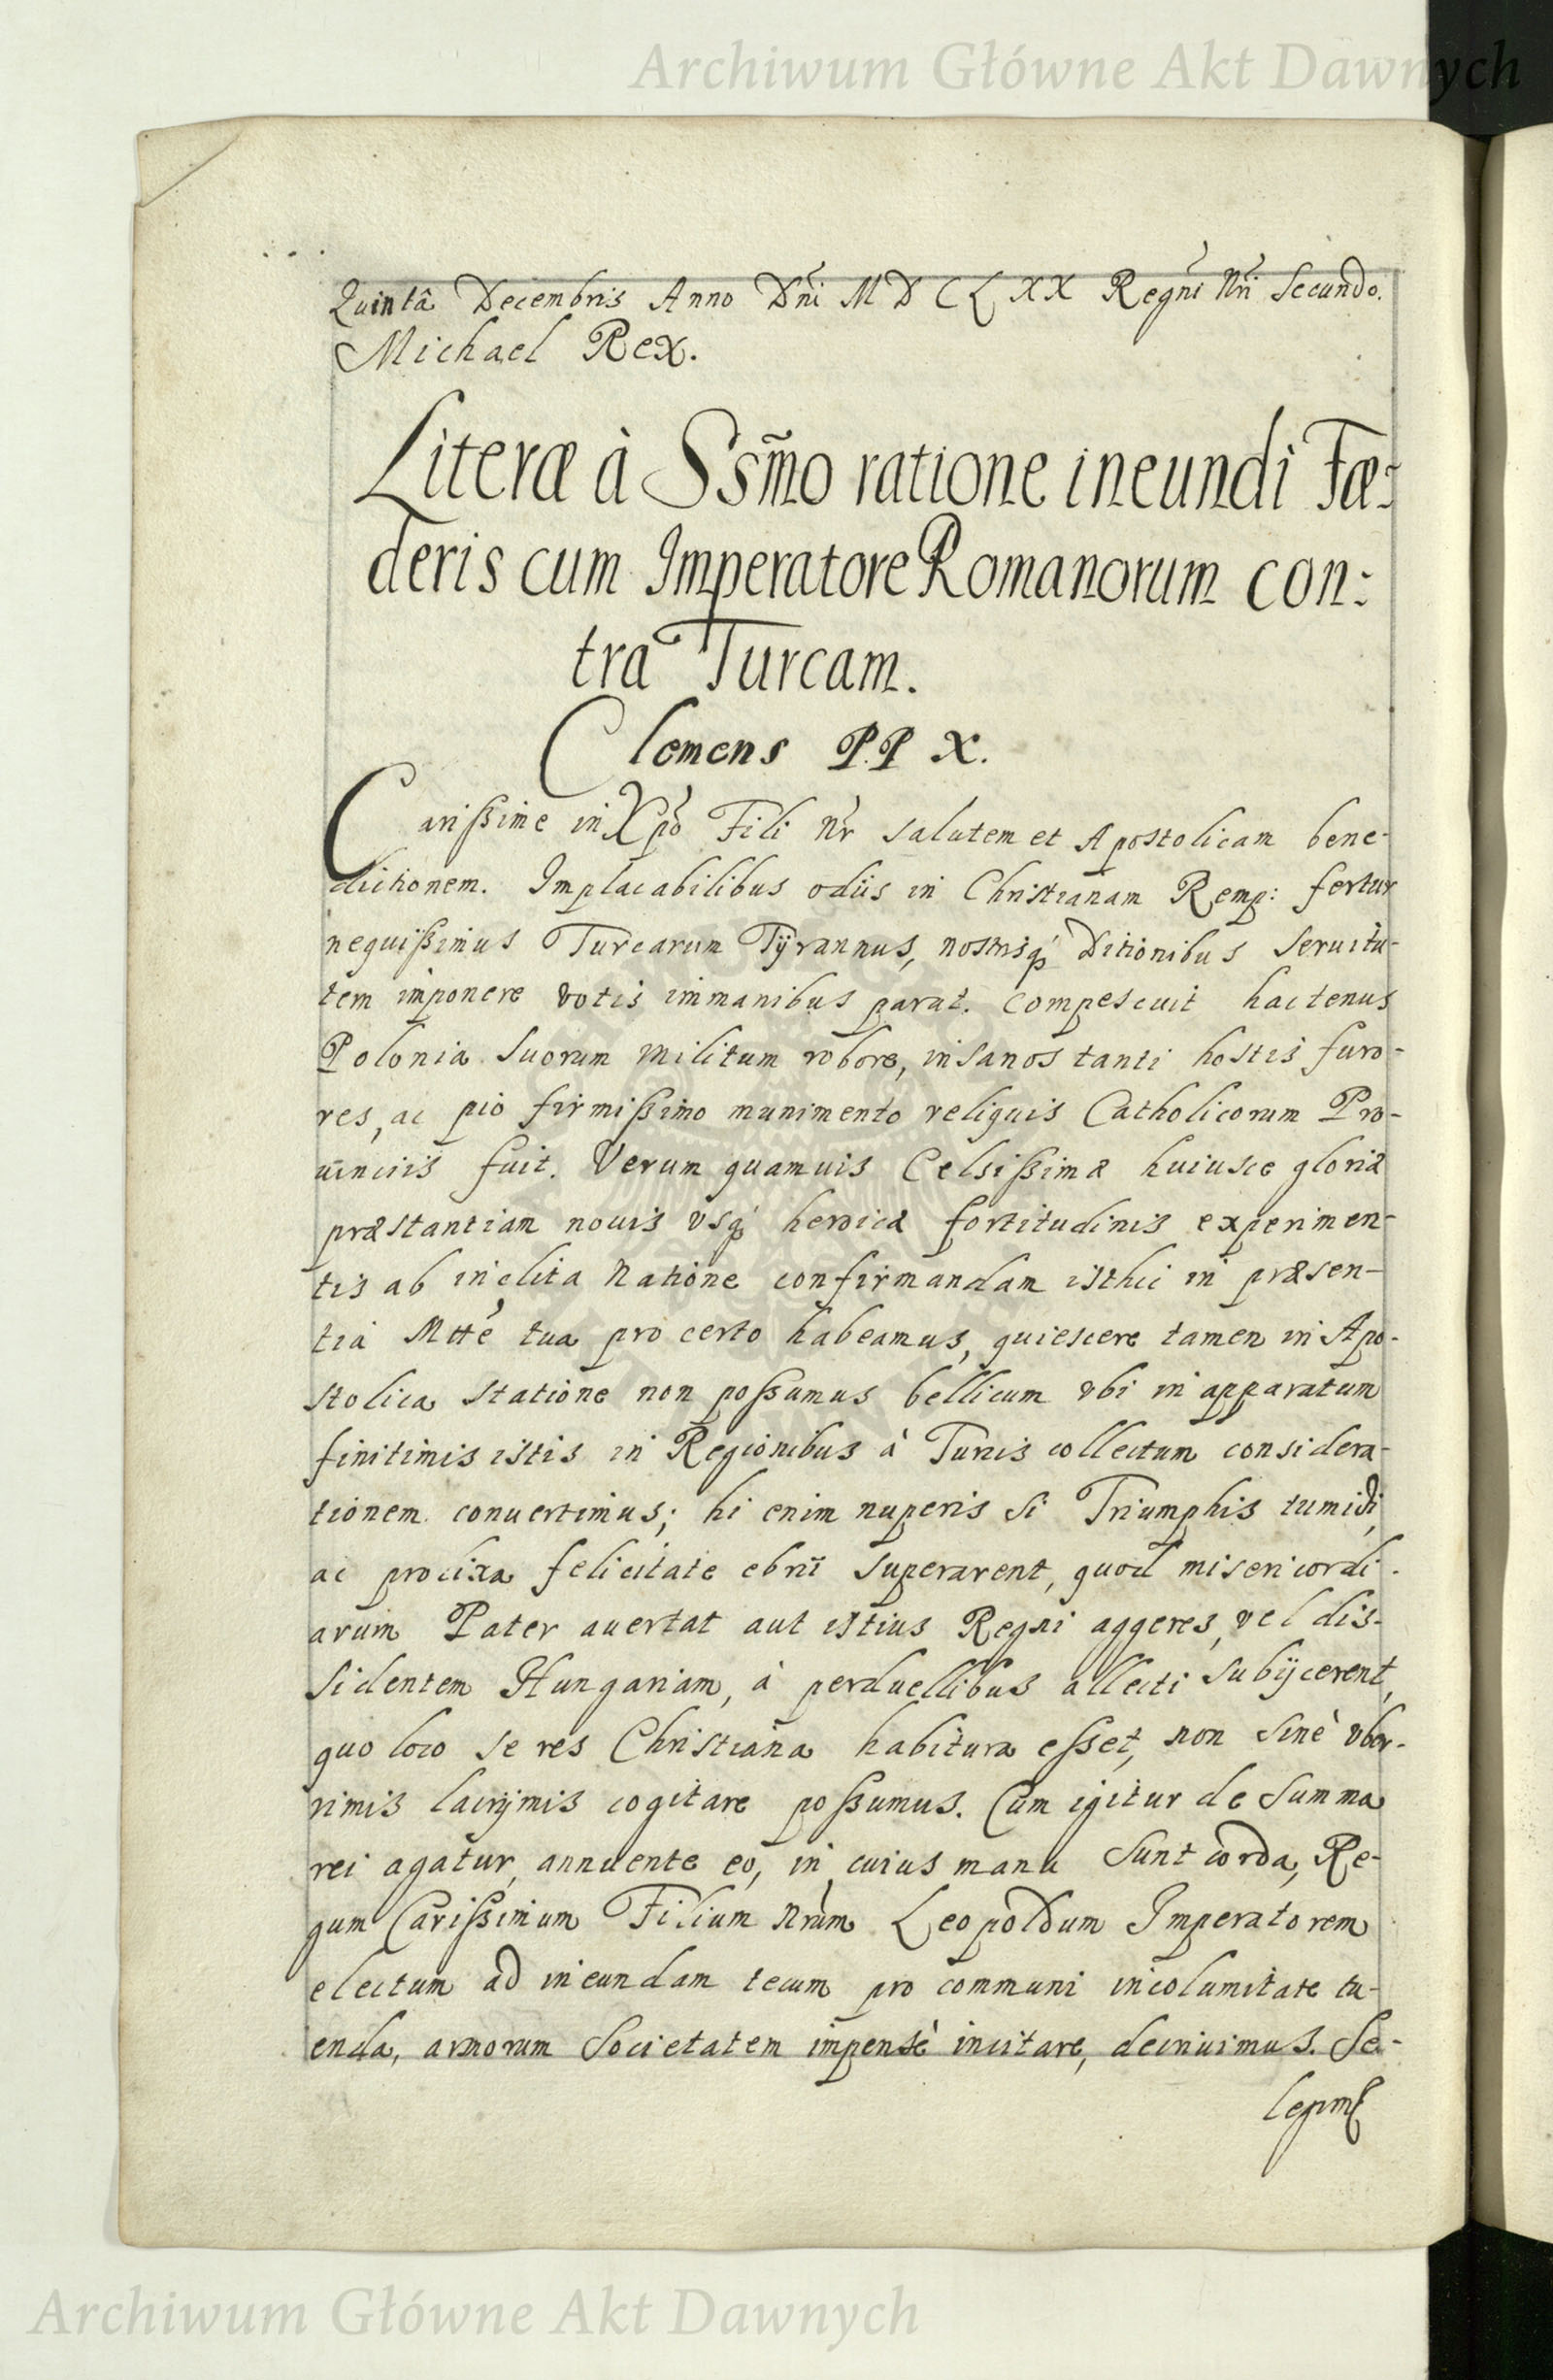 Archiwum Główne Akt Dawnych
Quintâ Decembris Anno Dni MDCLXX Regni Nri Secundo.
Michael Rex.
Literæ à Ssmo ratione ineundi Fæ:
deris cum Imperatore Romanorum con:
tra Turcam.
Clemens P.P X.
Carißime in Xpo Fili Nr salutem et Apostolicam bene-
dictionem. Implacabilibus odiis in Christianam Remp: fertur
nequißimus Turcarum Tÿrannus, nostrisq́ Ditionibus seruitu-
tem imponere votis immanibus parat. Compescuit hactenus
Polonia suorum militum robore, insanos tanti hostis furo-
res, ac pio firmißimo munimento reliquis Catholicorum Pro-
uinciis fuit. Verum quamuis Celsißimæ huiusce gloriæ
præstantiam nouis vsq́ heroicæ fortitudinis experimen-
tis ab inclita Natione confirmandam isthic in præsen-
tia Mtte tua pro certo habeamus, quiescere tamen in Apo-
stolica statione non poßumus bellicum vbi in apparatum
finitimis istis in Regionibus à Turcis collectum considera-
tionem conuertimus; hi enim nuperis si Triumphis tumidi,
ac prolixa felicitate ebrii superarent, quod misericordi-
arum Pater auertat aut istius Regni aggeres, vel dis-
sidentem Hungariam, à perduellibus allecti subijcerent,
quo loco se res Christiana habitura eßet, non sinè vber-
rimis lacrÿmis cogitare poßumus. Cum igitur de summa
rei agatur, annuente eo, in cuius manu sunt corda, Re-
gum Carißimum Filium Nrum Leopoldum Imperatorem
electum ad ineundam tecum pro communi incolumitate tu-
enda, armorum Societatem impensè incitare, decriuimus. Se-
Archiwum Główne Akt Dawnych